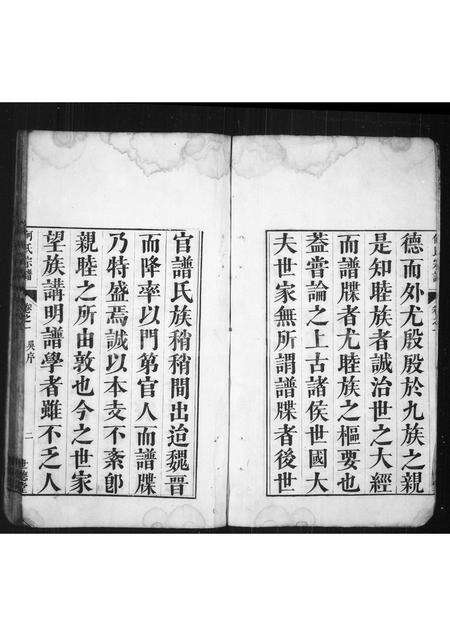 德而外尤殷殷於九族之親
是知睦族者誠治世之大經
而譜牒者尤睦族之樞要也
葢嘗論之上古諸侯世國大
夫世家無所謂譜牒者後世
官譜氏族稍稍間出迨魏晋
而降率以門第官人而譜牒
乃特盛焉誠以本支不紊卽
親睦之所由敦也今之世家
望族講明譜學者雖不乏人
何氏宗譜
卷之一
吳序
二
世德堂